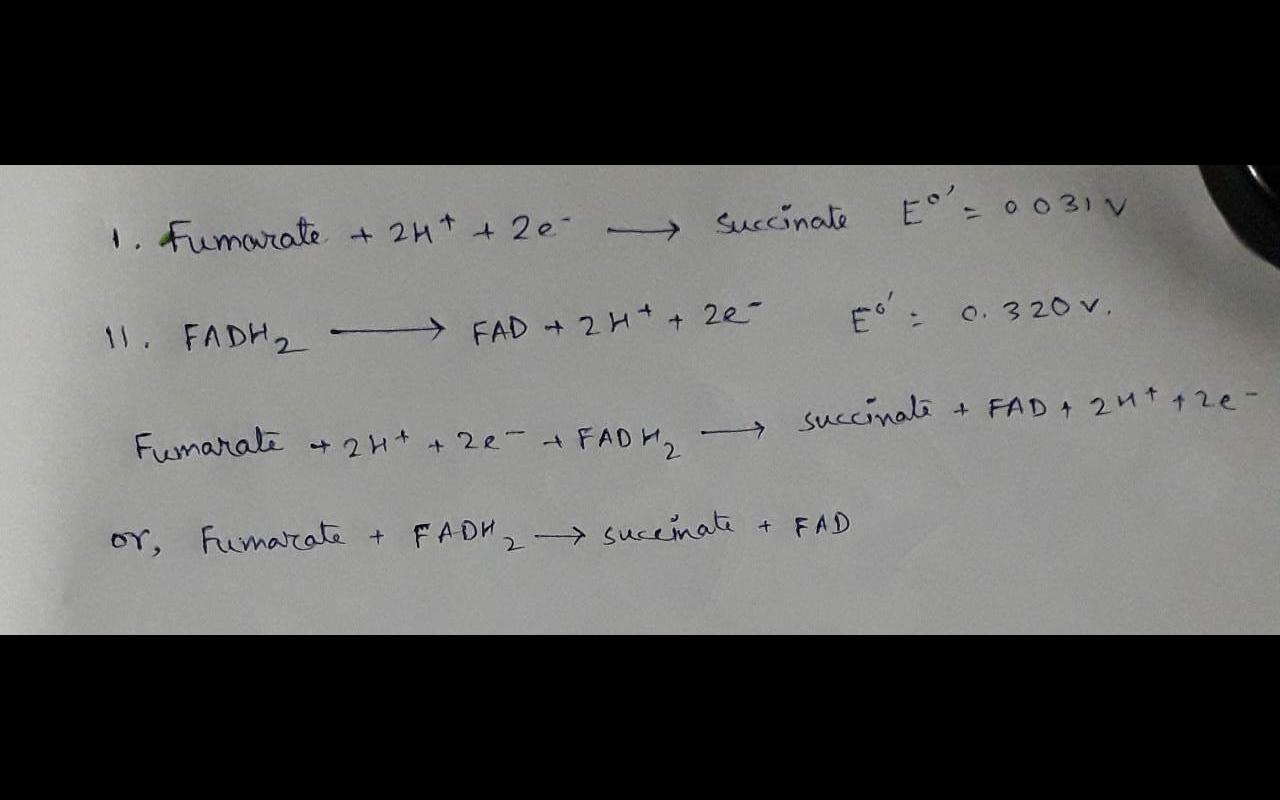 I. Fumarate + 2H⁺ + 2e⁻ → Succinate E°' = 0 031 V
II. FADH₂ → FAD + 2H⁺ + 2e⁻ E°' = 0.320 V.
Fumarate + 2H⁺ + 2e⁻ + FADH₂ → succinate + FAD + 2H⁺ + 2e⁻
or, Fumarate + FADH₂ → succinate + FAD